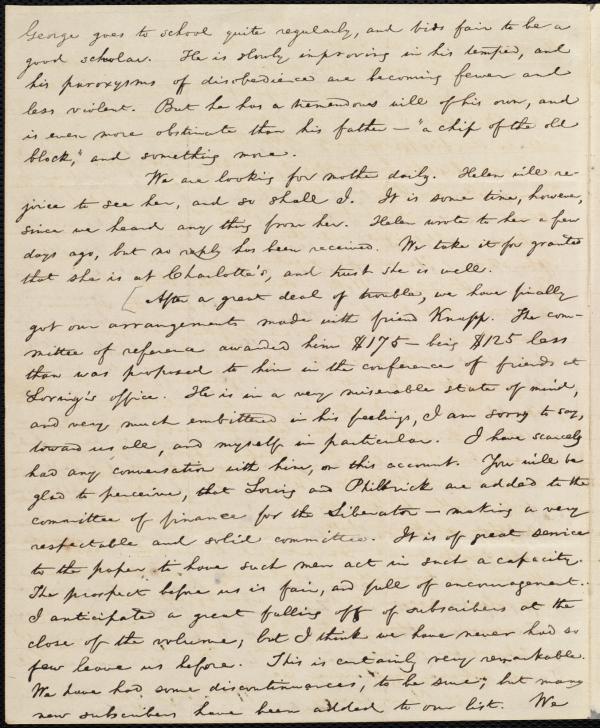 George goes to school quite regularly, and bids fair to be a
good scholar. He is slowly improving in his temper, and
his paroxysms of disobedience are becoming fewer and
less violent. But he has a tremendous will of his own, and
is even more obstinate than his father — "a chip of the old
block," and something more.
We are looking for mother daily. Helen will re-
joice to see her, and so shall I. It is some time, however,
since we heard any thing from her. Helen wrote to her a few
days ago, but no reply has been received. We take it for granted
that she is at Charlotte's, and trust she is well.
[After a great deal of trouble, we have finally
got our arrangements made with friend Knapp. The com-
mittee of reference awarded him $175 — being $125 less
than was proposed to him in the conference of friends at
Loring's office. He is in a very miserable state of mind,
and very much embittered in his feelings, I am sorry to say,
toward us all, and myself in particular. I have scarcely
had any conversation with him, on this account. You will be
glad to perceive, that Loring and Philbrick are added to the
committee of finance for the Liberator — making a very
respectable and solid committee. It is of great service
to the paper to have such men act in such a capacity.
The prospect before us is fair, and full of encouragement.
I anticipated a great falling off of subscribers at the
close of the volume; but I think we have never had so
few leave us before. This is certainly very remarkable.
We have had some discontinuances, to be sure; but many
new subscribers have been added to our list. We